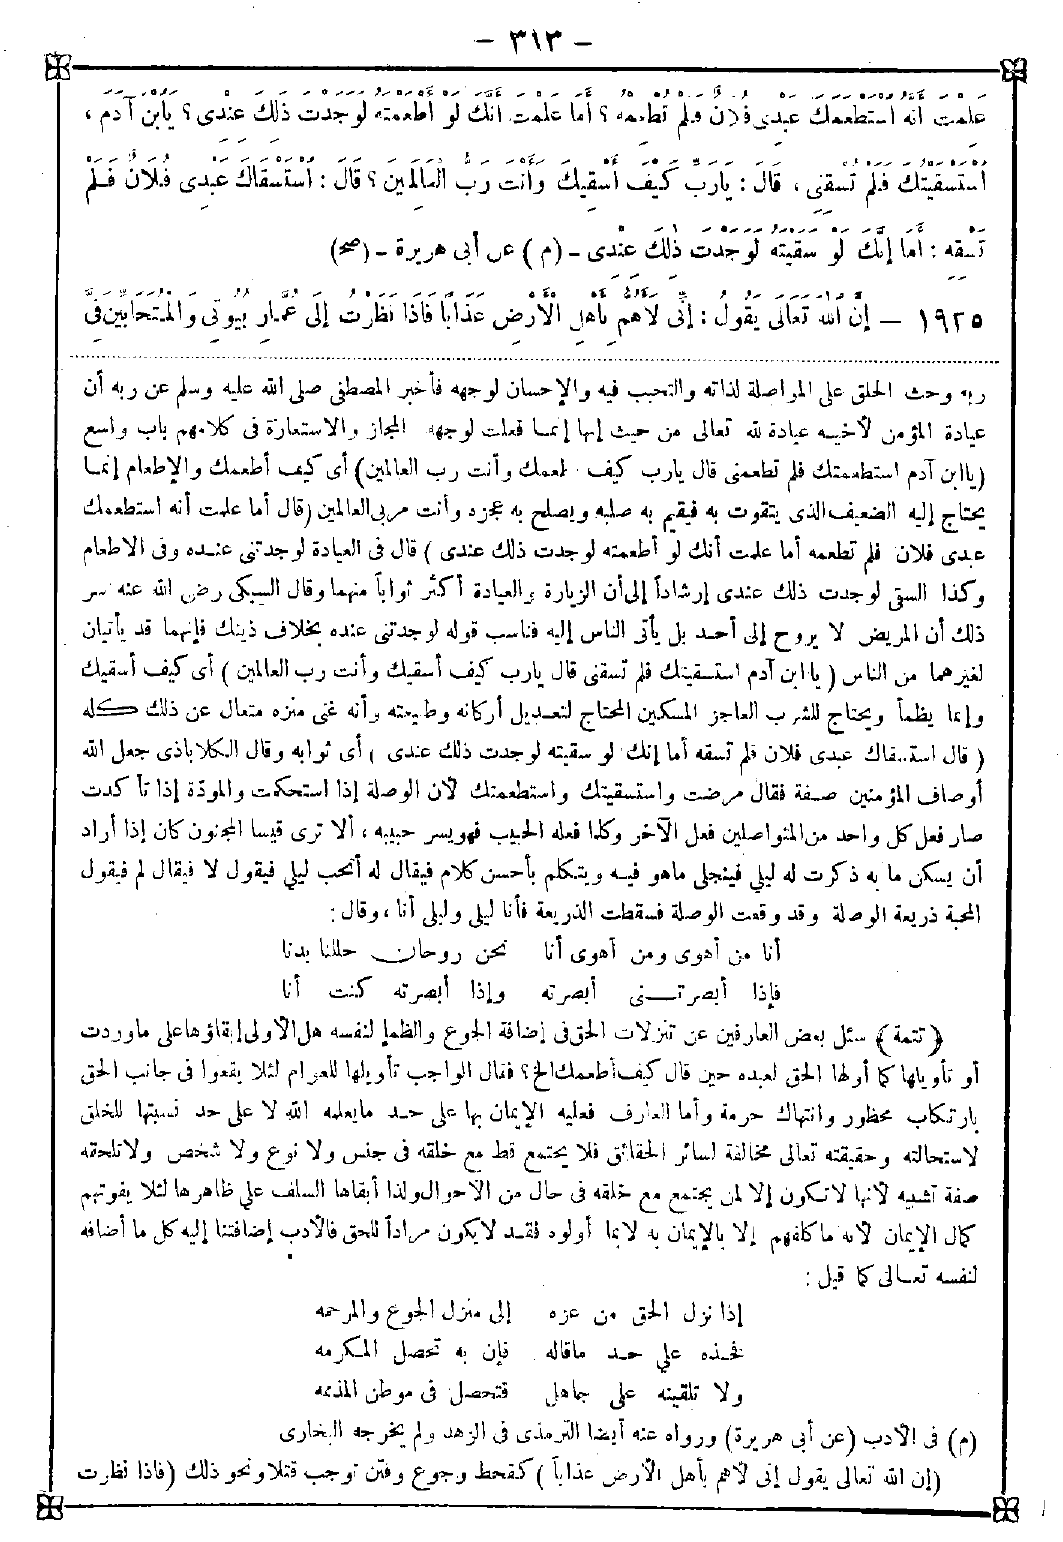 - ٣١٣ -
عَلِمْتَ أَنَّهُ اسْتَطْعَمَكَ عَبْدِى فُلَانٌ فَلَمْ تُطْعِمْهُ ؟ أَمَا عَلِمْتَ أَنَّكَ لَوْ أَطْعَمْتَهُ لَوَجَدْتَ ذَلِكَ عِنْدِى ؟ يَابْنَ آدَمَ ،
اسْتَسْقَيْتُكَ فَلَمْ تَسْقِنِى ، قَالَ : يَارَبِّ كَيْفَ أَسْقِيكَ وَأَنْتَ رَبُّ الْعَالَمِينَ ؟ قَالَ : اسْتَسْقَاكَ عَبْدِى فُلَانٌ فَلَمْ
تَسْقِهِ : أَمَا إِنَّكَ لَوْ سَقَيْتَهُ لَوَجَدْتَ ذَلِكَ عِنْدِى - (م) عن أبى هريرة - (صح)
١٩٢٥ — إِنَّ اللهَ تَعَالَى يَقُولُ : إِنِّى لَأَهُمُّ بِأَهْلِ الْأَرْضِ عَذَابًا فَإِذَا نَظَرْتُ إِلَى عُمَّارِ بُيُوتِى وَالْمُتَحَابِّينَ فِىَّ
ربه وحث الخلق على المواصلة لذاته والتحبب فيه والإحسان لوجهه فأخبر المصطفى صلى الله عليه وسلم عن ربه أن
عيادة المؤمن لأخيه عيادة لله تعالى من حيث إنها إنما فعلت لوجهه المجاز والاستعارة فى كلامهم باب واسع
(ياابن آدم استطعمتك فلم تطعمنى قال يارب كيف أطعمك وأنت رب العالمين) أى كيف أطعمك والإطعام إنما
يحتاج إليه الضعيف الذى يتقوت به فيقيم به صلبه ويصلح به عجزه وأنت مربى العالمين (قال أما علمت أنه استطعمك
عبدى فلان فلم تطعمه أما علمت أنك لو أطعمته لوجدت ذلك عندى) قال فى العيادة لوجدتنى عنده وفى الاطعام
وكذا السقى لوجدت ذلك عندى إرشاداً إلى أن الزيارة والعيادة أكثر ثواباً منهما وقال السبكى رضى الله عنه سر
ذلك أن المريض لا يروح إلى أحد بل يأتى الناس إليه فناسب قوله لوجدتنى عنده بخلاف ذينك فإنهما قد يأتيان
لغيرهما من الناس (ياابن آدم استسقيتك فلم تسقنى قال يارب كيف أسقيك وأنت رب العالمين) أى كيف أسقيك
وإنما يظمأ ويحتاج للشرب العاجز المسكين المحتاج لتعديل أركانه وطبيعته وأنه غنى منزه متعال عن ذلك كله
(قال استسقاك عبدى فلان فلم تسقه أما إنك لو سقيته لوجدت ذلك عندى) أى ثوابه وقال الكلاباذى جعل الله
أوصاف المؤمنين صفة فقال مرضت واستسقيتك واستطعمتك لأن الوصلة إذا استحكمت والمودة إذا تأكدت
صار فعل كل واحد من المتواصلين فعل الآخر وكلما فعله الحبيب فهو يسر حبيبه ، ألا ترى قيسا المجنون كان إذا أراد
أن يسكن ما به ذكرت له ليلى فينجلى ماهو فيه ويتكلم بأحسن كلام فيقال له أتحب ليلى فيقول لا فيقال لم فيقول
المحبة ذريعة الوصلة وقد وقعت الوصلة فسقطت الذريعة فأنا ليلى وليلى أنا ، وقال :
أنا من أهوى ومن أهوى أنا نحن روحان حللنا بدنا
فإذا أبصرتنى أبصرته وإذا أبصرته كنت أنا
(تتمة) سئل بعض العارفين عن تنزلات الحق فى إضافة الجوع والظمإ لنفسه هل الأولى إبقاؤها على ماوردت
أو تأويلها كما أولها الحق لعبده حين قال كيف أطعمك الخ؟ فقال الواجب تأويلها للعوام لئلا يقعوا فى جانب الحق
بارتكاب محظور وانتهاك حرمة وأما العارف فعليه الإيمان بها على حد مايعلمه الله لا على حد نسبتها للخلق
لاستحالته وحقيقته تعالى مخالفة لسائر الحقائق فلا يجتمع قط مع خلقه فى جنس ولا نوع ولا شخص ولاتلحقه
صفة تشبيه لأنها لاتكون إلا لمن يجتمع مع خلقه فى حال من الأحوال ولذا أبقاها السلف على ظاهرها لئلا يفوتهم
كمال الإيمان لأنه ماكلفهم إلا بالإيمان به لابما أولوه فقد لايكون مراداً للحق فالأدب إضافتنا إليه كل ما أضافه
لنفسه تعالى كما قيل :
إذا نزل الحق من عزه إلى منزل الجوع والمرحمه
فخذه على حد ماقاله فإن به تحصل المكرمه
ولا تلقينه على جاهل فتحصل فى موطن المذمه
(م) فى الأدب (عن أبى هريرة) ورواه عنه أيضا الترمذى فى الزهد ولم يخرجه البخارى
(إن الله تعالى يقول إنى لأهم بأهل الأرض عذاباً) كقحط وجوع وفتن توجب قتلا ونحو ذلك (فاذا نظرت